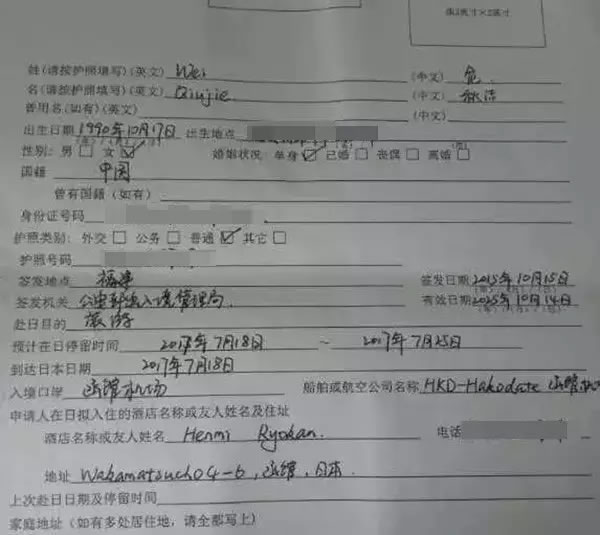 姓(请按护照填写)(英文) Wei (中文) 危
名(请按护照填写)(英文) Qiujie (中文) 秋洁
曾用名(如有)(英文) (中文)
出生日期 1990年10月17日 出生地点
性别: 男 □ 女 ☑ 婚姻状况: 单身 ☑ 已婚 □ 丧偶 □ 离婚 □
国籍 中国
曾有国籍(如有)
身份证号码
护照类别: 外交 □ 公务 □ 普通 ☑ 其它 □
护照号码
签发地点 福建 签发日期 2015年10月15日
签发机关 公安部出入境管理局 有效日期 2025年10月14日
赴日目的 旅游
预计在日停留时间 2017年7月18日 ~ 2017年7月25日
到达日本日期 2017年7月18日
入境口岸 函馆机场 船舶或航空公司名称 HKD-Hakodate 函馆机
申请人在日拟入住的酒店名称或友人姓名及住址
酒店名称或友人姓名 Henmi Ryokan. 电话
地址 Wakamatsucho 4-6, 函馆, 日本.
上次赴日日期及停留时间
家庭地址(如有多处居住地, 请全部写上)